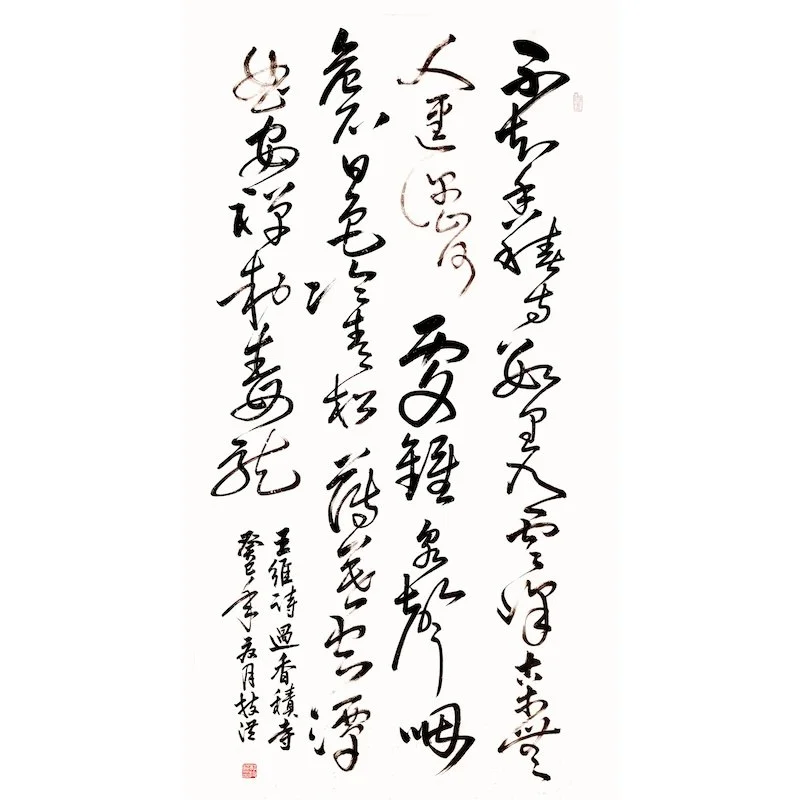 不知香積寺數里入雲峰古木無
人逕深山何處鐘泉聲咽
危石日色冷青松薄暮空潭
曲安禪制毒龍
王維詩過香積寺
癸巳年月